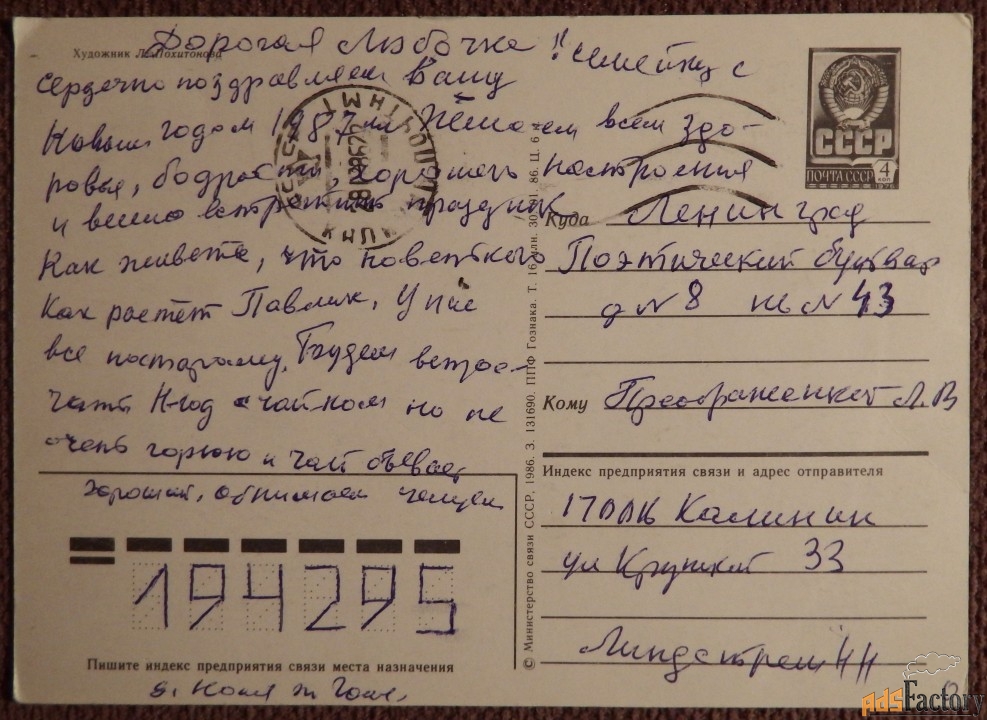 Художник Л. Похитонова
Дорогая Любочка!!
Сердечно поздравляем Вашу семейку с
Новым годом 1987 Желаем всем здо-
ровья, бодрости хорошего настроения
и весело встретить праздник
Как живете, что новенького
Как растёт Павлик, У нас
все постарому, Будем встре-
чать Н-год с чайком но не
очень горюю и чай бывает
хороший, обнимаем целуем
СССР
ПОЧТА СССР
4 коп
1976
Куда Ленинград
Поэтический бульвар
д N 8 кв N 43
Кому Преображенской Л.В
Индекс предприятия связи и адрес отправителя
Калинин
ул Крупской 33
Линдстрем НН
194295
Пишите индекс предприятия связи места назначения
© Министерство связи СССР, 1986. З. 131690. ППФ Гознака. Т. 16 млн.
AdsFactory